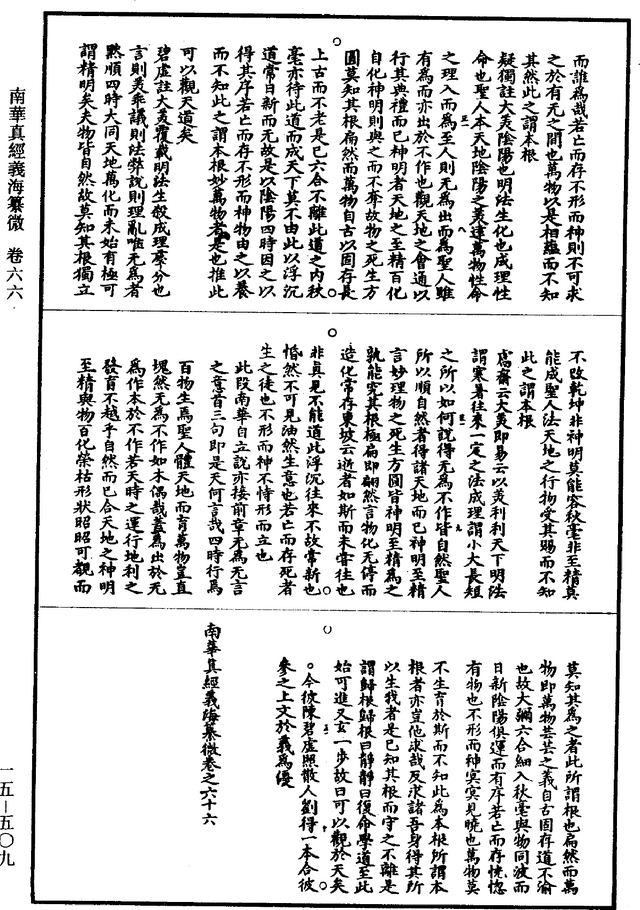 南華真經義海纂微 卷六六
一五—五〇九
而誰為哉若亡而存不形而神則不可求
之於有无之間也萬物以是相蘊而不知
其然此之謂本根
疑獨註大美陰陽也明法生化也成理性
命也聖人本天地陰陽之美達萬物性命
之理入而為至人則无為出而為聖人雖
有為而亦出於不作也觀天地之會通以
行其典禮而已神明者天地之至精百化
自化神明則與之而不奪故物之死生方
圓莫知其根扁然而萬物自古以固存是
上古而不老是已六合不離此道之內秋
毫亦待此道而成天下莫不由此以浮沉
道常日新而无故是以陰陽四時因之以
得其序若亡而存不形而神物由之以養
而不知此之謂本根妙萬物者是也推此
可以觀天道矣
碧虛註大美覆載明法生殺成理羣分也
言則美乖議則法弊說則理亂唯无為者
默順四時大同天地萬化而未始有極可
謂精明矣夫物皆自然故莫知其根獨立
不改乾坤非神明莫能容秋毫非至精莫
能成聖人法天地之行物受其賜而不知
此之謂本根
鬳齋云大美即易云以美利利天下明法
謂寒暑往來一定之法成理謂小大長短
之所以如何說得无為不作皆自然聖人
所以順自然者得諸天地而已神明至精
言妙理物之死生方圓皆神明至精為之
孰能究其根極扁即翩然言物化无停而
造化常存東坡云逝者如斯而未嘗往也
非真見不能道此浮沉往來不故常新也
惛然不可見油然生意也若亡而存死者
生之徒也不形而神不恃形而立也
此段南華自立說亦接前章无為无言
之意首三句即是天何言哉四時行焉
百物生焉聖人體天地而育萬物豈直
塊然无為不作如木偶哉蓋為出於无
為作本於不作若天時之運行地利之
發育不越乎自然而已合天地之神明
至精與物百化榮枯形狀昭昭可觀而
莫知其為之者此所謂根也扁然而萬
物即萬物芸芸之義自古固存道不渝
也故大彌六合細入秋毫與物同波而
日新陰陽俱運而有序若亡而存恍惚
有物也不形而神冥冥見曉也萬物莫
不生育於斯而不知此為本根所謂本
根者亦豈他求哉反求諸吾身得其所
以生我者是已知其根而守之不離是
謂歸根歸根曰靜靜曰復命學道至此
始可進又玄一步故曰可以觀於天矣
。今彼陳碧虛照散人劉得一本合彼
參之上文於義為優
南華真經義海纂微卷之六十六